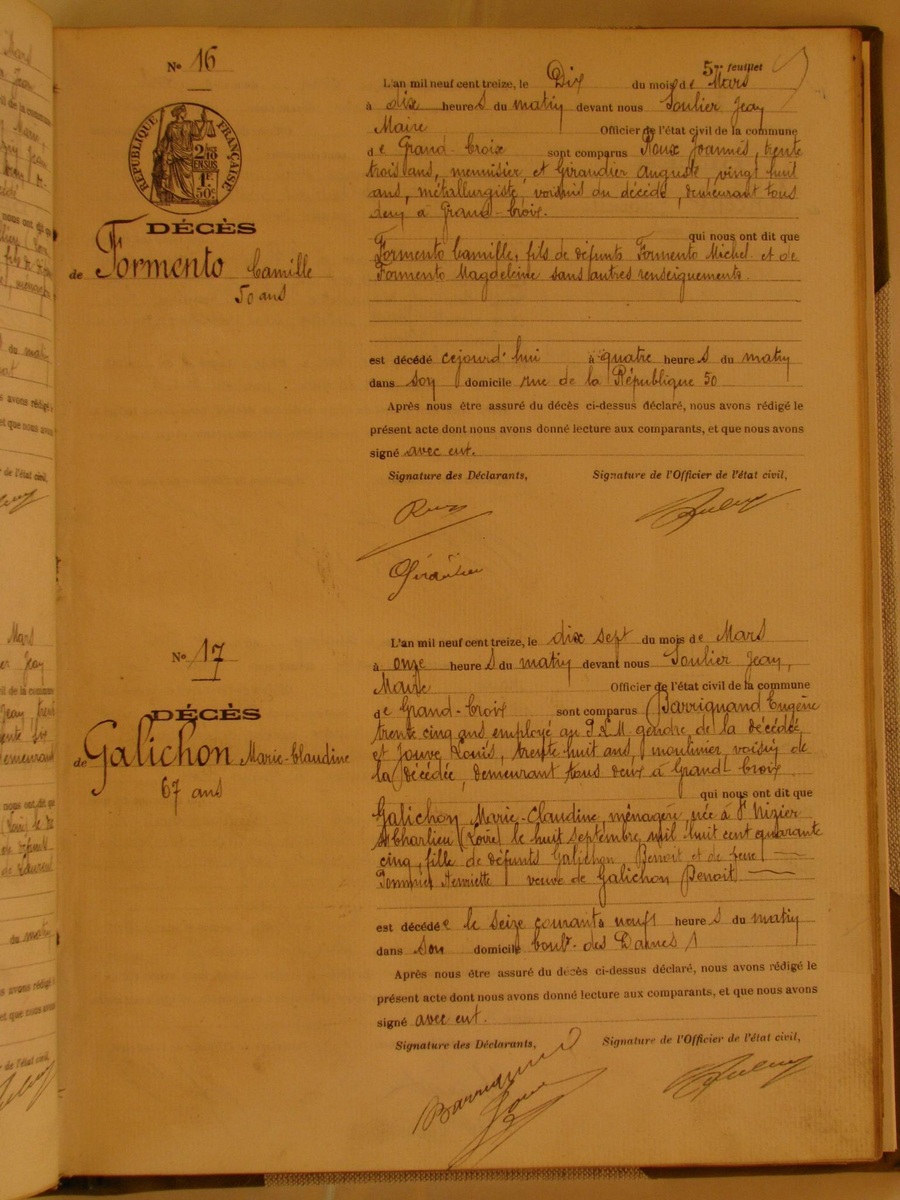 5me feuillet
No 16
RÉPUBLIQUE FRANÇAISE
2/10
EN SUS
1F
50c
DÉCÈS
de Formento Camille
50 ans
L'an mil neuf cent treize, le Dix du mois de Mars
à dix heures du matin devant nous Soulier Jean
Maire Officier de l'état civil de la commune
de Grand-Croix sont comparus Roux Joannès, trente
trois ans, menuisier, et Giraudier Auguste, vingt huit
ans, métallurgiste, voisins du décédé, demeurant tous
deux à Grand-Croix.
qui nous ont dit que
Formento Camille, fils de défunts Formento Michel et de
Formento Magdeleine sans autres renseignements.
est décédé cejourd'hui à quatre heures du matin
dans son domicile rue de la République 50
Après nous être assuré du décès ci-dessus déclaré, nous avons rédigé le
présent acte dont nous avons donné lecture aux comparants, et que nous avons
signé avec eux.
Signature des Déclarants, Signature de l'Officier de l'état civil,
Roux Soulier
Giraudier
No 17
DÉCÈS
de Galichon Marie-Claudine
67 ans
L'an mil neuf cent treize, le dix sept du mois de Mars
à onze heures du matin devant nous Soulier Jean,
Maire Officier de l'état civil de la commune
de Grand-Croix sont comparus Barrignand Eugène
trente cinq ans employé au P.L.M. gendre de la décédée
et Jouve Louis, trente huit ans, moulinier, voisin de
la décédée, demeurant tous deux à Grand'Croix.
qui nous ont dit que
Galichon Marie-Claudine, ménagère, née à St Nizier
s/Charlieu (Loire) le huit septembre mil huit cent quarante
cinq, fille de défunts Galichon Benoit et de feue
Pommier Henriette veuve de Galichon Benoit
est décédée le seize courant à neuf heures du matin
dans son domicile boulv. des Dames 1
Après nous être assuré du décès ci-dessus déclaré, nous avons rédigé le
présent acte dont nous avons donné lecture aux comparants, et que nous avons
signé avec eux.
Signature des Déclarants, Signature de l'Officier de l'état civil,
Barrignand Soulier
Jouve